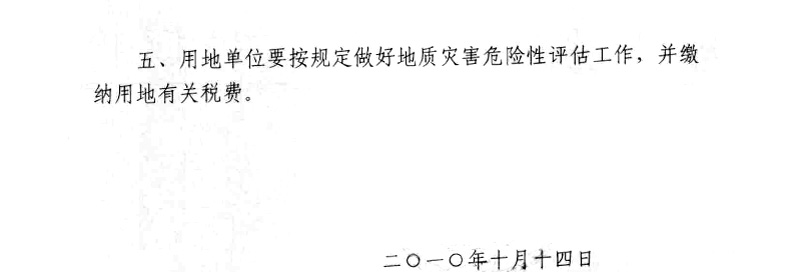 五、用地单位要按规定做好地质灾害危险性评估工作，并缴
纳用地有关税费。
二〇一〇年十月十四日